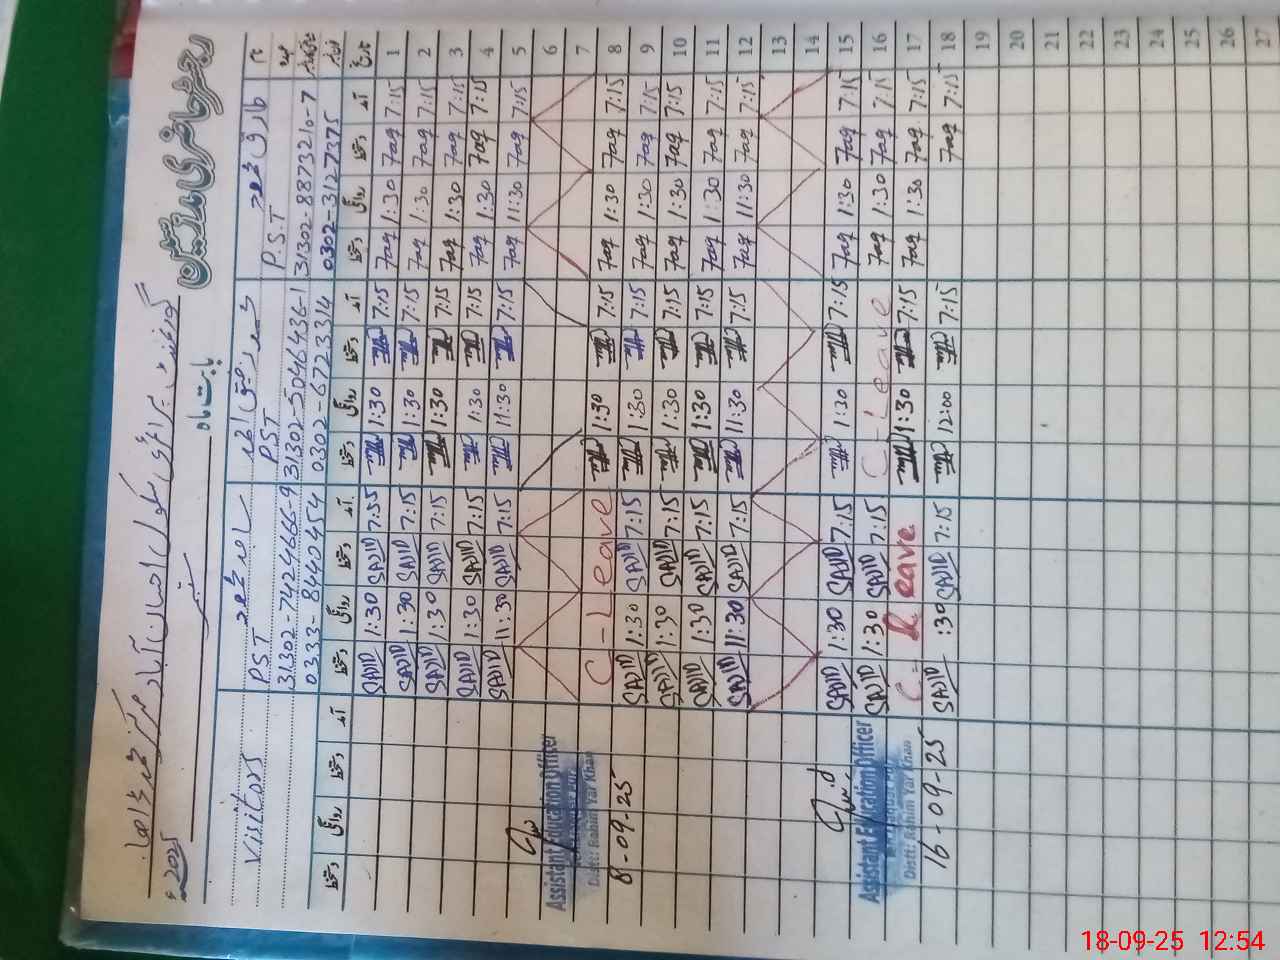 رجسٹر حاضری مدرسین
گورنمنٹ پرائمری سکول احسان آباد مرکز
بابت ماہ ستمبر 2025ء
نام طارق محمود محمد رفیق احمد ساجد محمود Visitors
عہدہ P.S.T PST PST
31302-8873210-7 31302-5046436-1 31302-7424666-9
0302-3127375 0302-6723314 0333-8440454
تاریخ آمد دستخط روانگی دستخط آمد دستخط روانگی دستخط آمد دستخط روانگی دستخط آمد دستخط روانگی دستخط
1 7:15 7aq 1:30 7aq 7:15 1:30 7:55 SAJID 1:30 SAJID
2 7:15 7aq 1:30 7aq 7:15 1:30 7:15 SAJID 1:30 SAJID
3 7:15 7aq 1:30 7aq 7:15 1:30 7:15 SAJID 1:30 SAJID
4 7:15 7aq 1:30 7aq 7:15 1:30 7:15 SAJID 1:30 SAJID
5 7:15 7aq 11:30 7aq 7:15 11:30 7:15 SAJID 11:30 SAJID
6
7 Assistant Education Officer
8 7:15 7aq 1:30 7aq 7:15 1:30 C-Leave Distt: Rahim Yar Khan
9 7:15 7aq 1:30 7aq 7:15 1:30 7:15 SAJID 1:30 SAJID 8-09-25
10 7:15 7aq 1:30 7aq 7:15 1:30 7:15 SAJID 1:30 SAJID
11 7:15 7aq 1:30 7aq 7:15 1:30 7:15 SAJID 1:30 SAJID
12 7:15 7aq 11:30 7aq 7:15 11:30 7:15 SAJID 11:30 SAJID
13
14
15 7:15 7aq 1:30 7aq 7:15 1:30 7:15 SAJID 1:30 SAJID
16 7:15 7aq 1:30 7aq C-Leave 7:15 SAJID 1:30 SAJID Assistant Education Officer
17 7:15 7aq 1:30 7aq 7:15 1:30 C-Leave Distt: Rahim Yar Khan
18 7:15 7aq 7:15 12:00 7:15 SAJID :30 SAJID 16-09-25
19
20
21
22
23
24
25
26
27
18-09-25 12:54